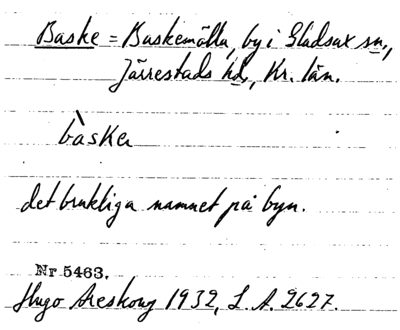 Baske = Baskemölla, by i Gladsax sn,
Järrestads hd, Kr. län.
bàska
det brukliga namnet på byn.
Nr 5463.
Hugo Areskoug 1932, L. A. 2627.